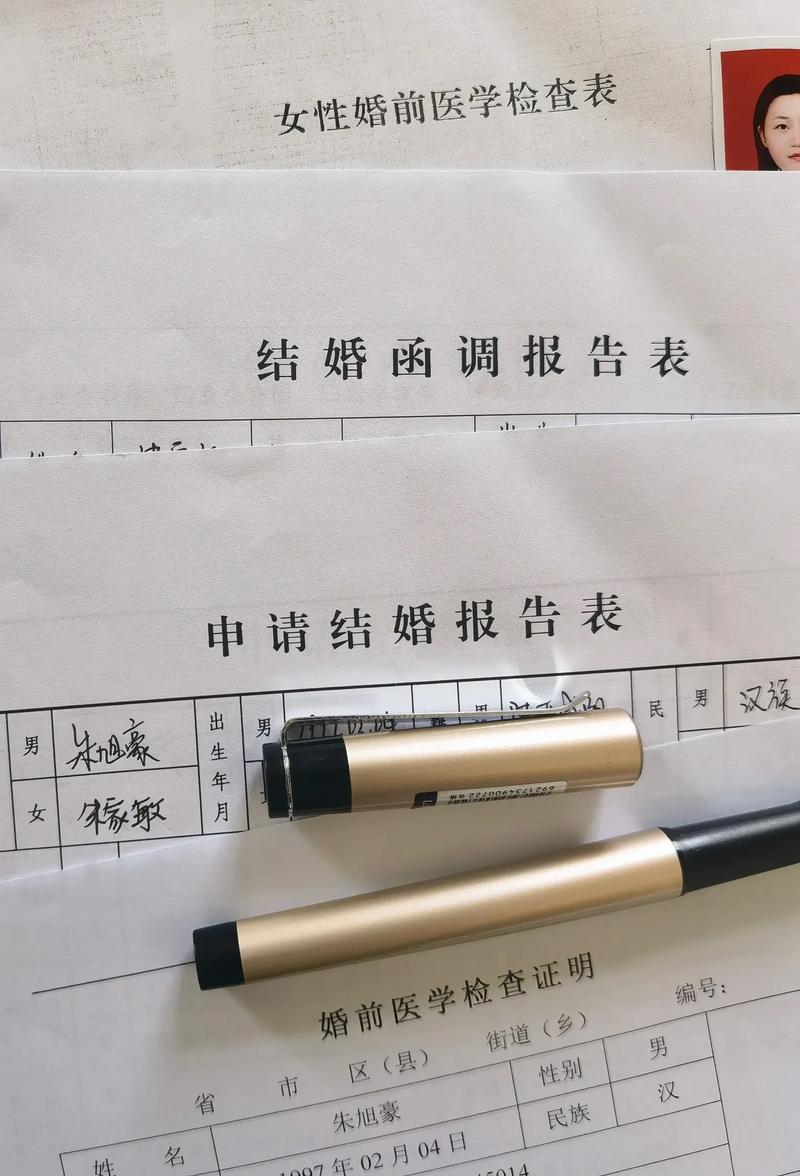 女性婚前医学检查表
结婚函调报告表
申请结婚报告表
男 朱旭豪 出生年月 男 民 男 汉族
女 敏
6921734900722 合格
婚前医学检查证明
编号:
省 市 区（县） 街道（乡）
姓名 朱旭豪 性别 男
1997年02月04日 民族 汉